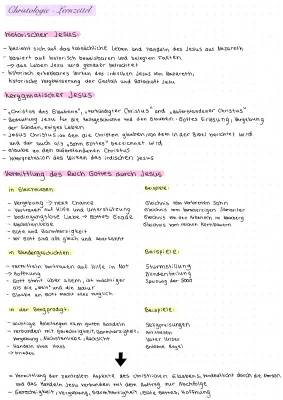 Christologie - Lernzettel
historischer Jesus:
- bezieht sich auf das tatsächliche Leben und Handeln des Jesus aus Nazareth
- basiert auf historisch beweisbaren und belegten Fakten
→ das Leben Jesu wird genauer betrachtet
- historisch erkennbares Wirken des irdischen Jesus von Nazareth,
historische Vergewisserung der Gestalt und Botschaft Jesu
Kerygmatischer Jesus:
- „Christus des Glaubens", „verkündigter Christus" und „auferstandener Christus"
- Bedeutung Jesu für die Heilsgeschichte und den Glauben: Gottes Erlösung, Vergebung
der Sünden, ewiges Leben
- Jesus Christus an den die Christen glauben, von dem in der Bibel berichtet wird
und der auch als „Sohn Gottes" bezeichnet wird
- Glaube an den auferstandenen Christus
- Interpretation des Wirkens des irdischen Jesus
Vermittlung des Reich Gottes durch Jesus
in Gleichnissen
Beispiele:
- Vergebung → next Chance
Gleichnis vom verlorenen Sohn
- Vertrauen auf Hilfe und Unterstützung
Gleichnis vom barmherzigen Samariter
- bedingungslose Liebe → Gottes Gnade
Gleichnis von den Arbeitern im Weinberg
- Nächstenliebe
Gleichnis vom reichen Kornbauern
- Güte und Barmherzigkeit
- vor Gott sind alle gleich und anerkannt
in Wundergeschichten:
Beispiele:
- vermitteln Vertrauen auf Hilfe in Not
Sturmstillung
- Hoffnung
Blindenheilung
- Gott steht über allem, ist mächtiger
Speisung der 5000
als die „Welt" und die Natur
- Glaube an Gott macht alles möglich
in der Bergpredigt:
Beispiele:
- wichtige Anleitungen zum guten Handeln
Seligpreisungen
- verbunden mit Gerechtigkeit, Barmherzigkeit,
Antithesen
Vergebung, Nächstenliebe, Rücksicht
Vater Unser
- Handeln ohne Hass
Goldene Regel
→ Frieden
- Vermittlung der zentralen Aspekte des christlichen Glaubens, verdeutlicht durch die Person
und das Handeln Jesu verbunden mit dem Auftrag zur Nachfolge
- Gerechtigkeit, Vergebung, Barmherzigkeit, Liebe Gottes, Hoffnung